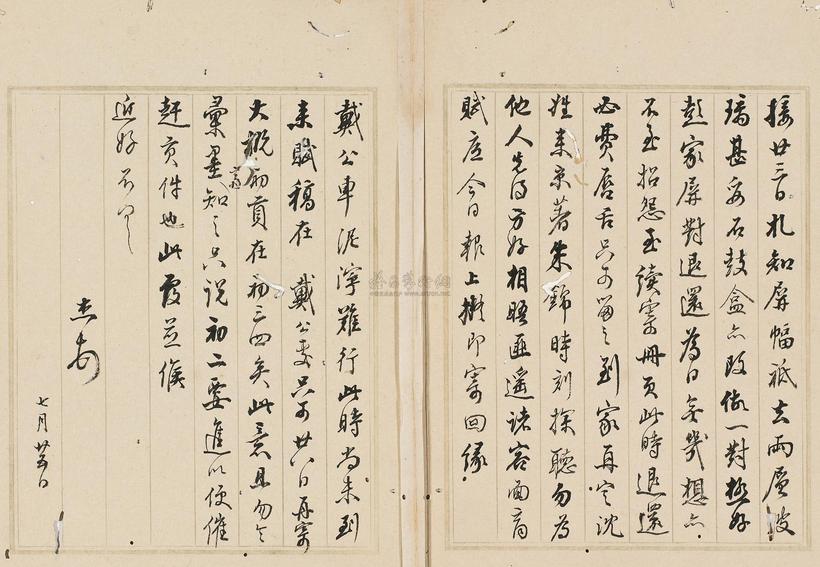 接廿三日札知屏幅祗去兩層波
璃甚妥石鼓盒亦改做一對極好
彭家屏對退還為日無幾想亦
不至招怨至續寄冊頁此時退還
必費唇舌只可留之到家再定沈
姓來京著朱錦時刻探聽勿為
他人先得方好相晤匪遙諸容面商
賦底今日報上擬即寄回緣
戴公車泥濘難行此時尚未到
未賦稿在 戴公處只可廿八日再寄
大概節前貢在初三四矣此意且勿令
彙
知之只說初二要進以便催
趕貢件也此覆並候
近好不一
杰书
七月廿五日